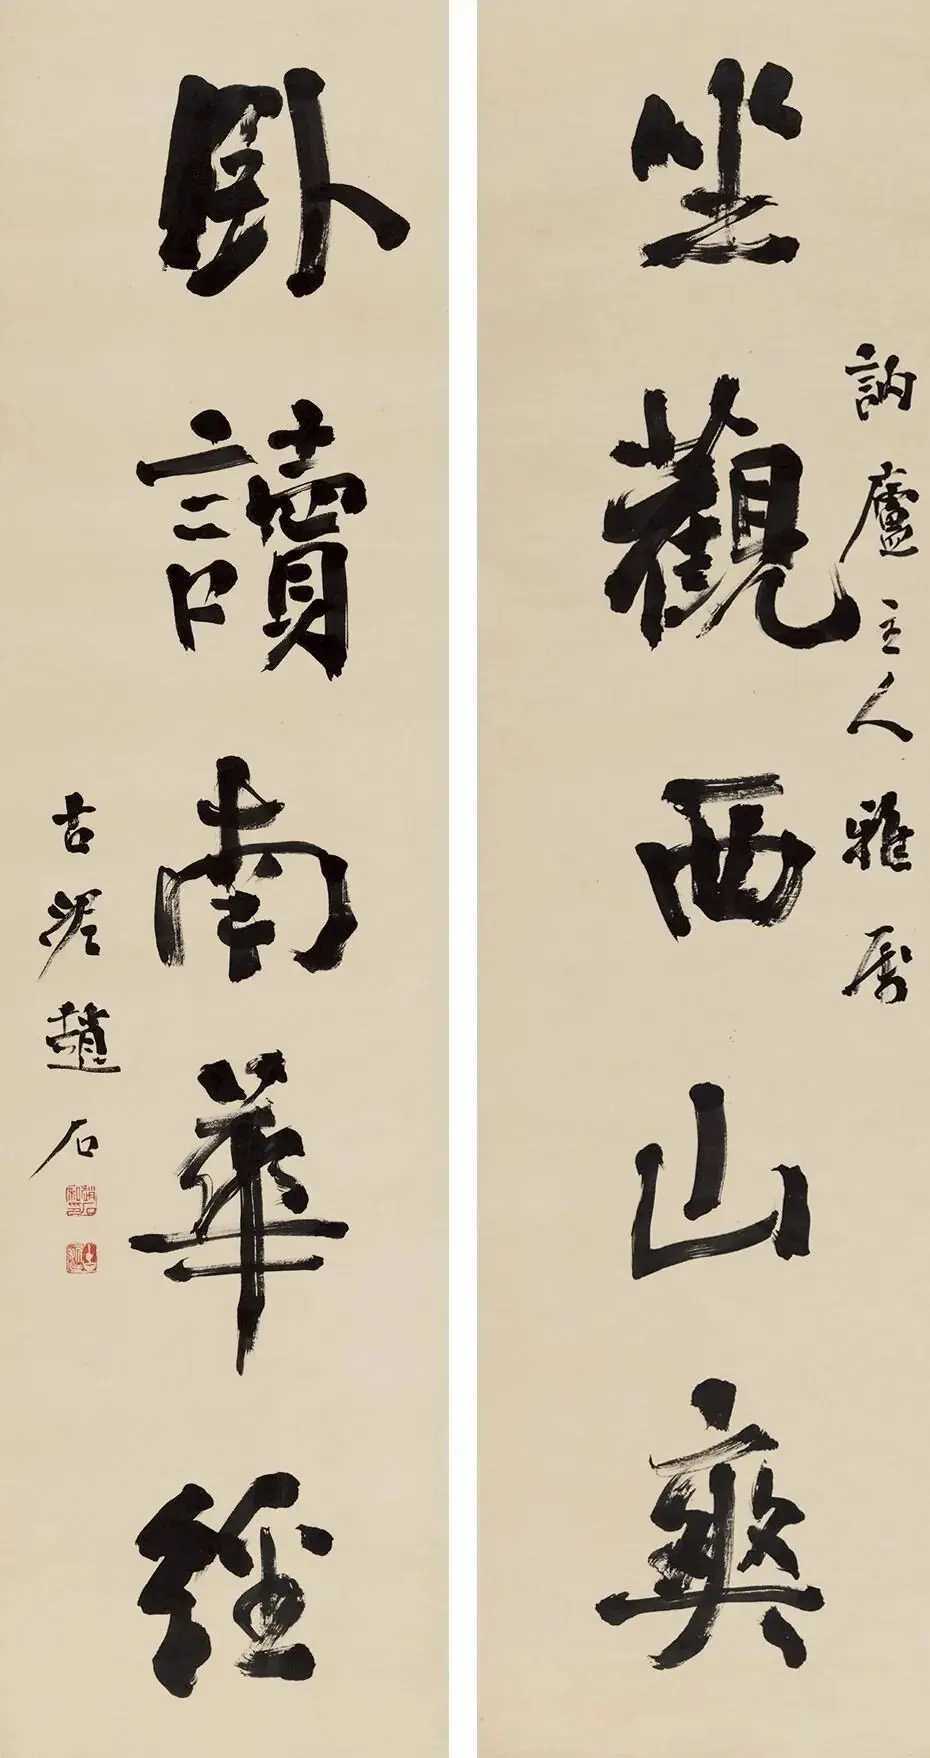 訥廬主人雅屬
坐觀西山爽
卧讀南華經
古泥趙石